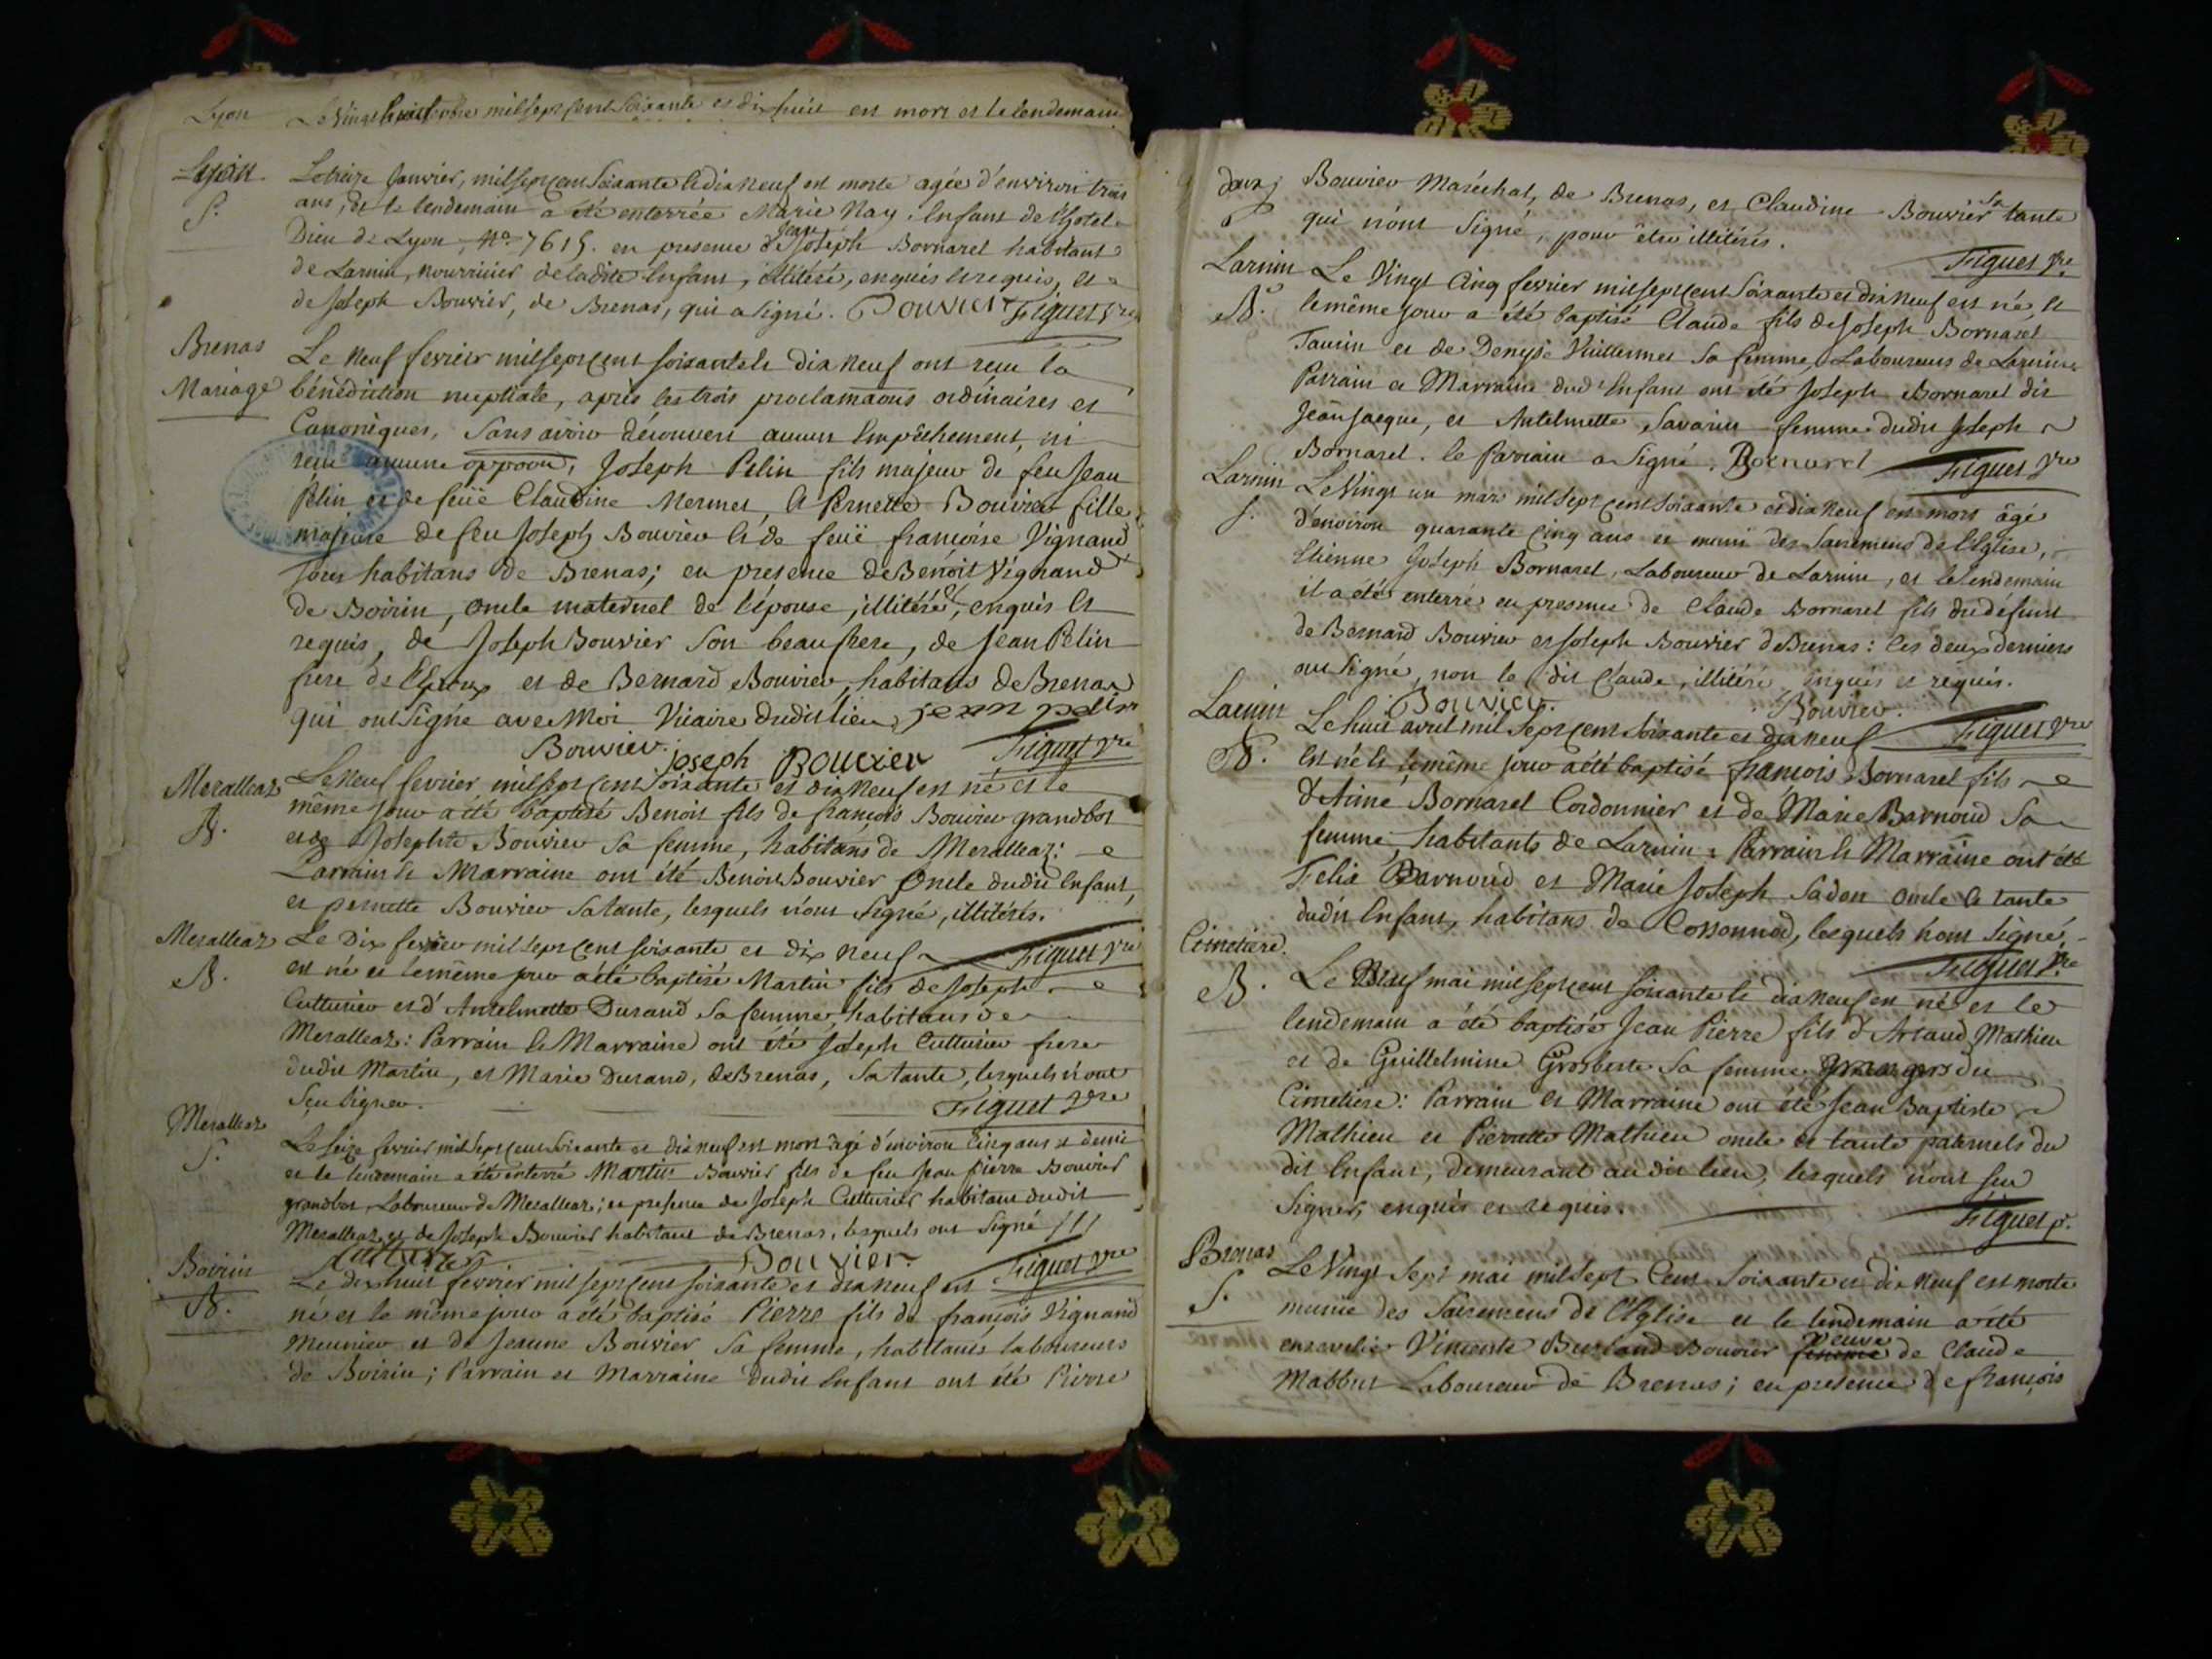 Lyon
Le Vingt huit octobre mil sept cent soixante et dix huit est mort et le lendemain
Lyon
S.
Le treize Janvier, mil sept cent soixante et dix neuf est morte agée d'environ trois
ans, et le lendemain a été enterrée Marie Nay, Enfant de l'hotel
Dieu de Lyon, No. 7615. en presence de Jean Joseph Bornarel habitant
de Larnin, nourricier de ladite Enfant, illitéré, enquis et requis, et
de Joseph Bouvier, de Brenas, qui a signé. Bouvier Figuet Vre
Brenas
Mariage
Le neuf fevrier mil sept cent soixante et dix neuf ont reçu la
bénédiction nuptiale, après les trois proclamaons ordinaires et
Canoniques, sans avoir découvert aucun Empêchement, ni
reçu aucune oppoon, Joseph Pelin fils majeur de feu Jean
Pelin et de feüe Claudine Mermet, et Pernette Bouvier fille
majeure de feu Joseph Bouvier et de feüe françoise Vignand
tous habitans de Brenas; en presence de Benoit Vignand
de Boirin, oncle maternel de l'épouse, illitéré, enquis et
requis, de Joseph Bouvier son beau frere, de Jean Pelin
frere de l'Epoux et de Bernard Bouvier, habitans de Brenas
qui ont signé avec Moi Vicaire dudit lieu. jean pelin
Bouvier. joseph Bouvier Figuet Vre
Meralleaz
B.
Le neuf fevrier mil sept cent soixante et dix neuf est né et le
même jour a été baptisé Benoit fils de françois Bouvier grandbot
et de Josephte Bouvier sa femme, habitans de Meralleaz:
Parrain et Marraine ont été Benoit Bouvier Oncle dudit Enfant,
et pernette Bouvier sa tante, lesquels n'ont signé, illitérés.
Figuet Vre
Meralleaz
B.
Le Dix fevrier mil sept cent soixante et dix neuf
est né et le même jour a été baptisé Martin fils de Joseph
Cutturier et d'Antelmette Durand sa femme, habitans de
Meralleaz: Parrain et Marraine ont été Joseph Cutturier frere
dudit Martin, et Marie Durand, de Brenas, sa tante, lesquels n'ont
sçu signer. Figuet Vre
Meralleaz
S.
Le seize fevrier mil sept cent soixante et dix neuf est mort agé d'environ cinq ans et demi
et le lendemain a été enterré Martin Bouvier fils de feu Jean pierre Bouvier
grandbot, Laboureur de Meralleaz; en presence de Joseph Cutturier habitant dudit
Meralleaz, et de Joseph Bouvier habitant de Brenas, lesquels ont signé
Cutturier Bouvier. Figuet Vre
Boirin
B.
Le dix huit fevrier mil sept cent soixante et dix neuf est
né et le même jour a été baptisé Pierre fils de françois Vignand
Meunier et de Jeanne Bouvier sa femme, habitants laboureurs
de Boirin; Parrain et Marraine dudit Enfant ont été Pierre
Bouvier Maréchal, de Brenas, et Claudine Bouvier sa tante
qui n'ont signé, pour être illitérés.
Figuet Vre
Larnin
B.
Le Vingt Cinq fevrier mil sept cent soixante et dix neuf est né, et
le même jour a été baptisé Claude fils de Joseph Bornarel
Taurin et de Denyse Vuillermet sa femme, Laboureurs de Larnin
Parrain et Marraine dudt Enfant ont été Joseph Bornarel dit
Jean Jacque, et Antelmette Savarin femme dudit Joseph
Bornarel. le Parrain a signé. Bornarel Figuet Vre
Larnin
S.
Le Vingt un mars mil sept cent soixante et dix neuf est mort âgé
d'environ quarante cinq ans et muni des Sacremens de l'Eglise,
Etienne Joseph Bornarel, Laboureur de Larnin, et le lendemain
il a été enterré en presence de Claude Bornarel fils du défunt
de Bernard Bouvier et Joseph Bouvier de Brenas: les deux derniers
ont signé, non le dit Claude, illitéré, enquis et requis.
Bouvier. Bouvier.
Figuet Vre
Larnin
B.
Le huit avril mil sept cent soixante et dix neuf
est né et le même jour a été baptisé françois Bornarel fils
d'Aimé Bornarel Cordonnier et de Marie Barnoud sa
femme, habitants de Larnin: Parrain et Marraine ont été
Felix Barnoud et Marie Joseph Sadon oncle et tante
dudit Enfant, habitans de Cossonnod, lesquels n'ont signé
Figuet Vre
Cimetiere.
B.
Le Neuf mai mil sept cent soixante et dix neuf est né et le
lendemain a été baptisé Jean Pierre fils d'Artaud Mathieu
et de Guillelmine Grosbeste sa femme du
Cimetiere: Parrain et Marraine ont été Jean Baptiste
Mathieu et Pierrette Mathieu oncle et tante paternels du
dit Enfant, demeurant au dit lieu, lesquels n'ont sçu
signer, enquis et requis.
Figuet p.
Brenas
S.
Le Vingt sept mai mil sept Cent soixante et dix neuf est morte
munie des Sacremens de l'Eglise et le lendemain a été
ensevelie Vincente Bouvier veuve de Claude
Mabbut Laboureur de Brenas; en presence de françois